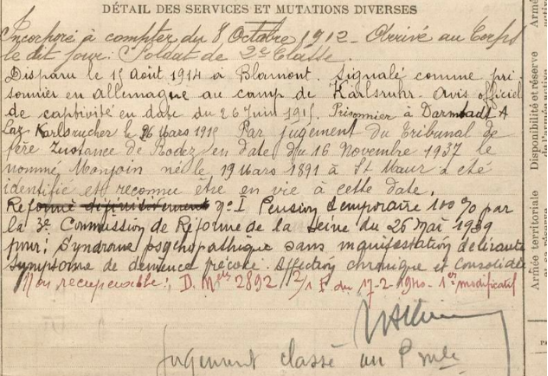 DÉTAIL DES SERVICES ET MUTATIONS DIVERSES
Incorporé à compter du 8 Octobre 1912 - Arrivé au Corps
le dit jour. Soldat de 2e Classe
Disparu le 15 Août 1914 à Blamont. signalé comme pri
sonnier en Allemagne au camp de Karlsruhr. Avis officiel
de captivité en date du 26 Juin 1915. Prisonnier à Darmstadt. A
Laz. Karlsrucher le 26 Mars 1915 Par jugement du Tribunal de
1ère Instance de Rodez en date du 16 Novembre 1937 le
nommé Monjoin né le 19 Mars 1891 à St Maur a été
identifié et reconnu être en vie à cette date.
Réformé définitivement n° I Pension temporaire 100 % par
la 3e Commission de Réforme de la Seine du 26 Mai 1939
pour: Syndrome psychopathique sans manifestation délirante
symptome de démence précoce. Affection chronique et consolidée
Non récupérable. D. Mles 2892 2/1 P du 17-2-1940 - 1er modificatif
jugement classé au
Armée territoriale
Disponibilité et réserve